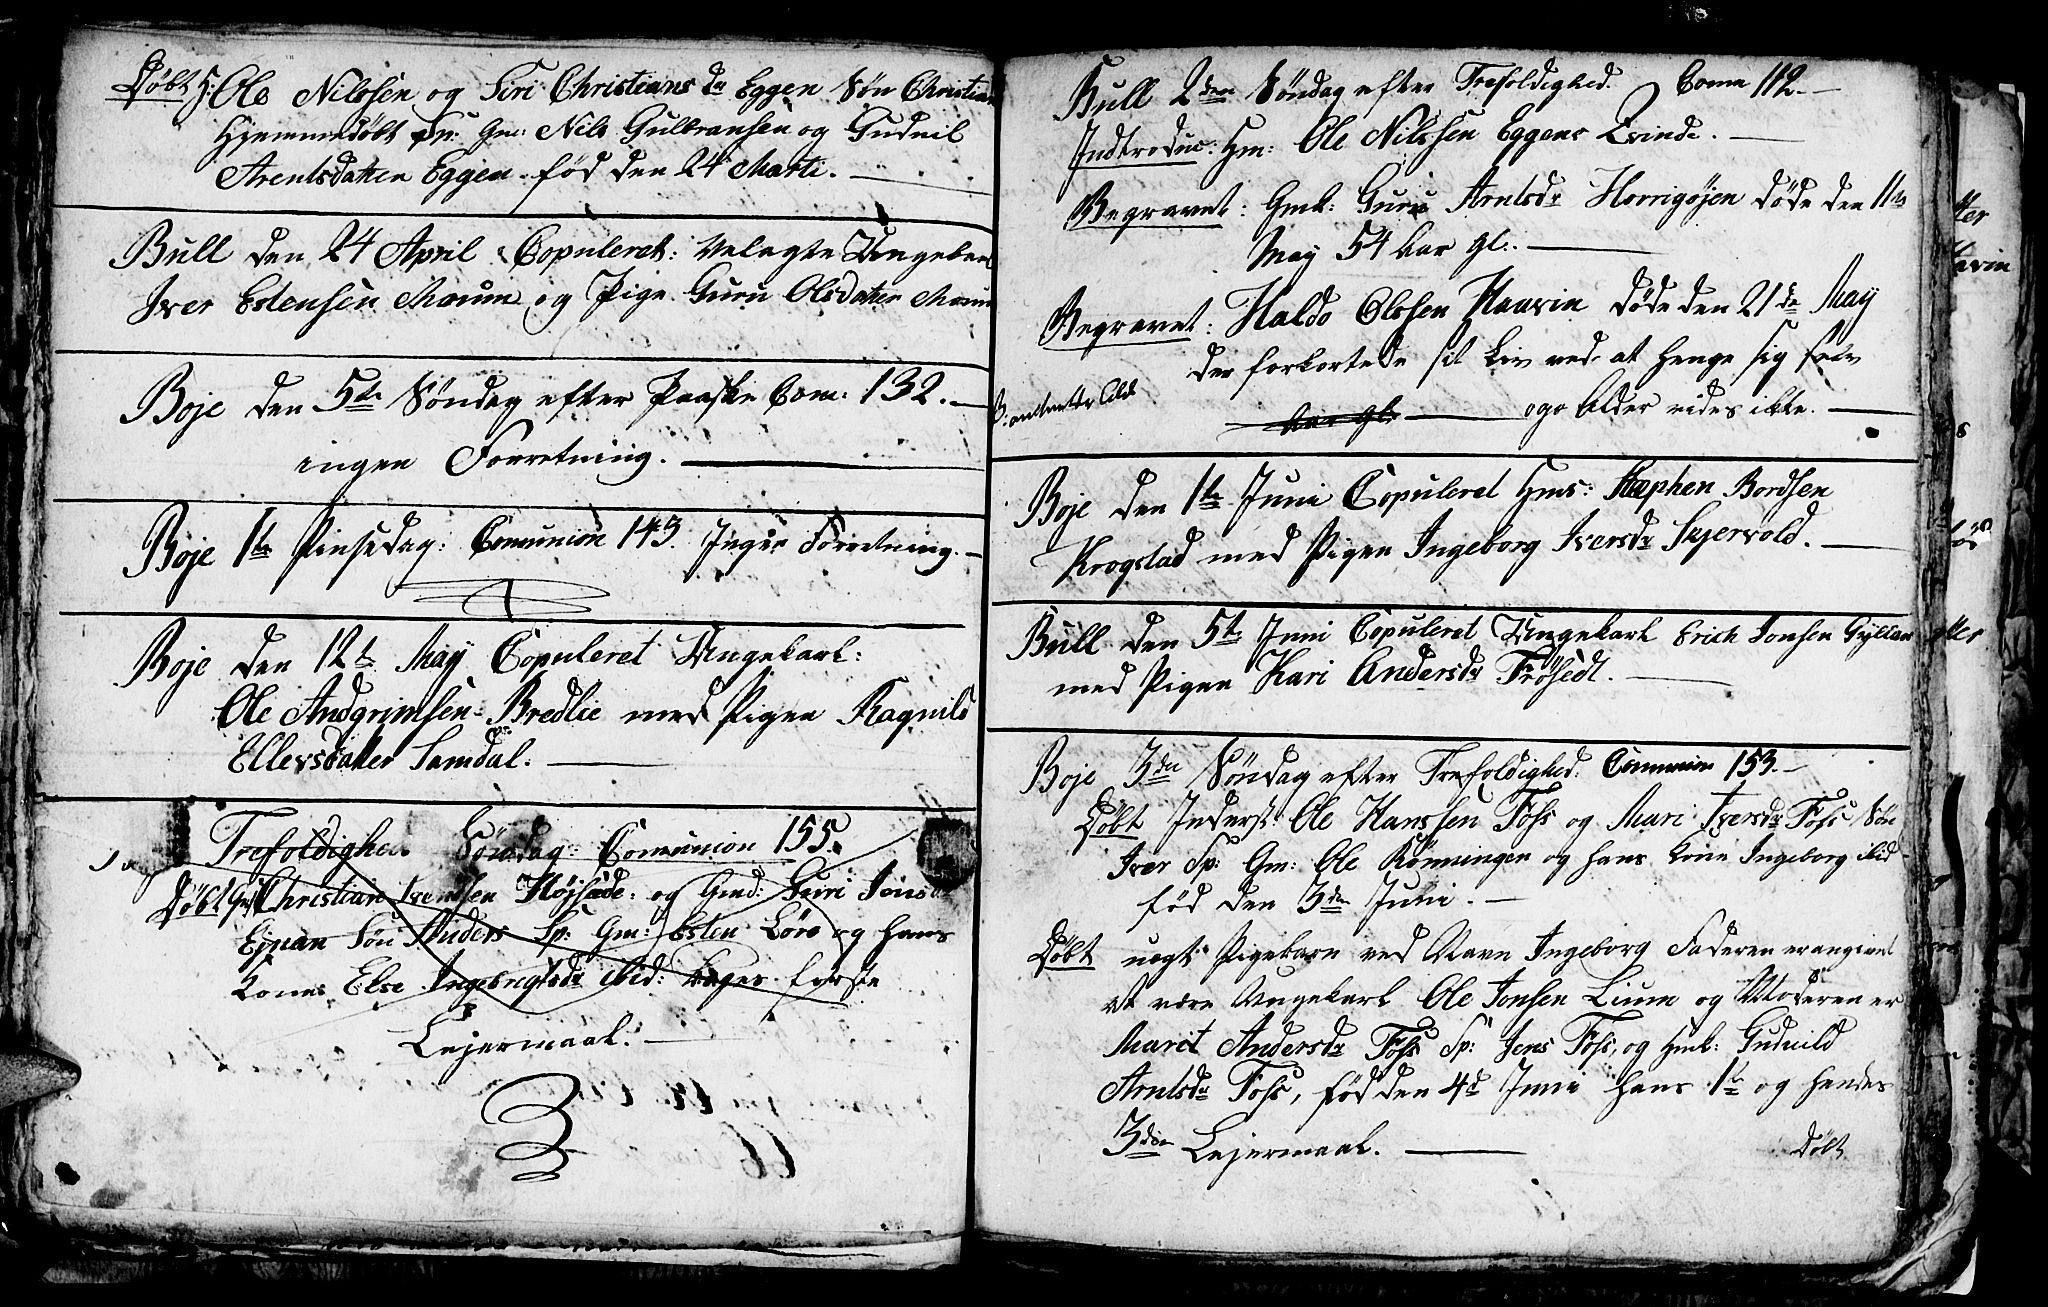 Døbt Hm: Ole Nilssen og Siri Christiansdr Eggen Søn Christian
Hjemmedøbt Sp: Gm: Nils Gulbransen og Gudnil
Arentsdatter Eggen. fød den 24 Marti.
Bull den 24 April Copuleret: Velagte Ungekarl
Iver Estensen Moeum og Pige Guru Olsdatter Moeum
Boje den 5te Søndag efter Paaske Com: 132.
ingen Forretning.
Boje 1te Pinsedag: Comunion 143. Ingen Forretning.
Boje den 12t May Copuleret Ungekarl:
Ole Andgrimsen Bredlie med Pigen Ragnild
Ellevsdatter Samdal.
Trefoldighed Søndag: Comunion 155.
Døbt Christian Svendsen Højsæde: og Gmd: Guri Jonsdr
Søn Anders Sp: Gm: Esten Løre og hans
Kone Else Ingebrigtsdr ibid: begges første
Lejermaal.
Bull 2den Søndag efter Trefoldighed. Coma 112.
Indtroduc: Hm: Ole Nilssen Eggens Qvinde.
Begravet: Gmk: Guru Arntsdr Horrigøjen døde den 11te
May 54 Aar gl:
Begravet: Haldo Olssen Haavin døde den 21de May
der forkortede sit Liv ved at henge sig selv
Aar gl. ogs Alder vides ikke.
Boje den 1te Juni Copuleret Hms: Stephen Bordsen
Krogstad med Pigen Ingeborg Iversdr Skjervold.
Bull den 5te Juni Copuleret Ungekarl Erich Jonsen Gyllan
med Pigen Kari Andersdr Frøsedt.
Boje 3die Søndag efter Trefoldighed: Comunion 153.
Døbt Inderst: Ole Hanssen Foss og Mari Iversdr Foss Søn
Iver Sp: Gm: Ole Rønningen og hans Kone Ingeborg ibid
fød den 3die Juni.
Døbt uægte Pigebarn ved Navn Ingeborg Faderen er angivet
at være Ungekarl Ole Jonsen Lium og Moderen er
Marit Andersdr Foss Sp: Jens Foss, og Hmk: Gudnild
Arntsdr Foss, fød den 4d Juni hans 1te og hendes
3die Lejermaal.
Døbt